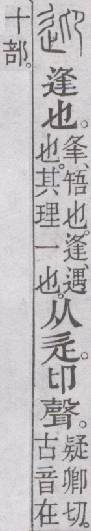 迎逢也。夆、啎也。逢、遇也。其理一也。从辵。卬聲。疑卿切。古音在
十部。